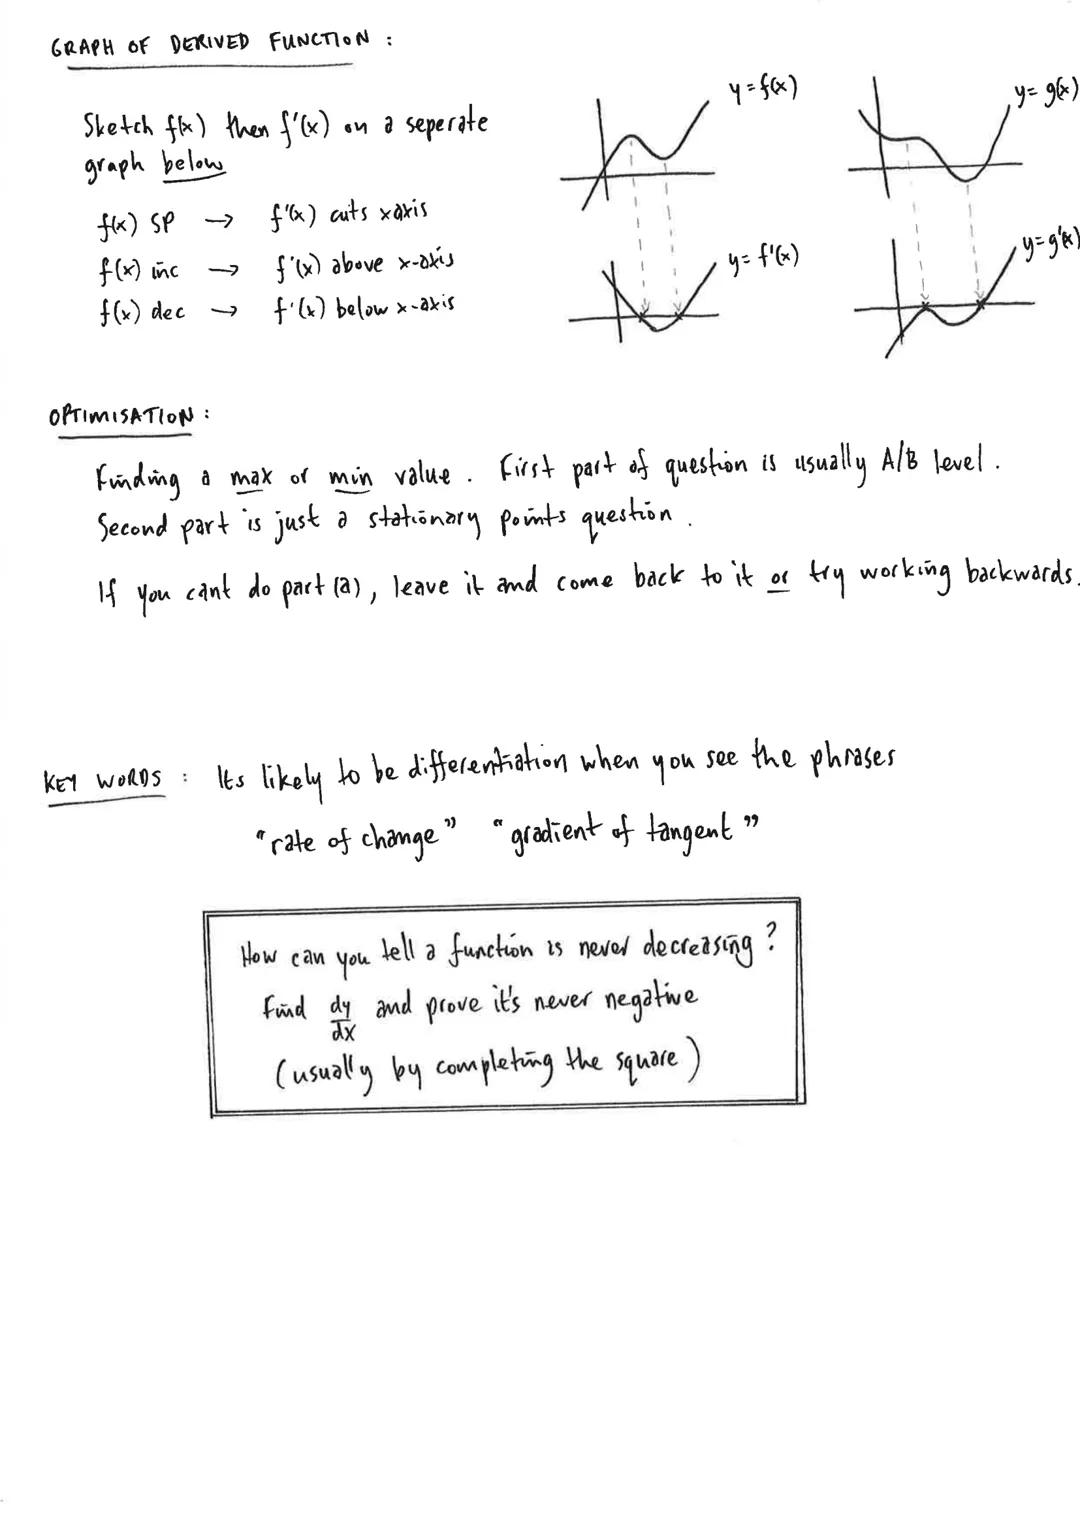 GRAPH OF DERIVED FUNCTION :
Sketch f(x) then f'(x) on a seperate
graph below
f(x) SP → f'(x) cuts xaxis
f(x) inc → f'(x) above x-axis
f(x) dec → f'(x) below x-axis
y = f(x)
y = g(x)
y = f'(x)
y = g'(x)
OPTIMISATION :
Finding a max or min value. First part of question is usually A/B level.
Second part is just a stationary points question.
If you cant do part (a), leave it and come back to it or try working backwards.
KEY WORDS : Its likely to be differentiation when you see the phrases
"rate of change" "gradient of tangent"
How can you tell a function is never decreasing?
Find dy/dx and prove it's never negative
(usually by completing the square)